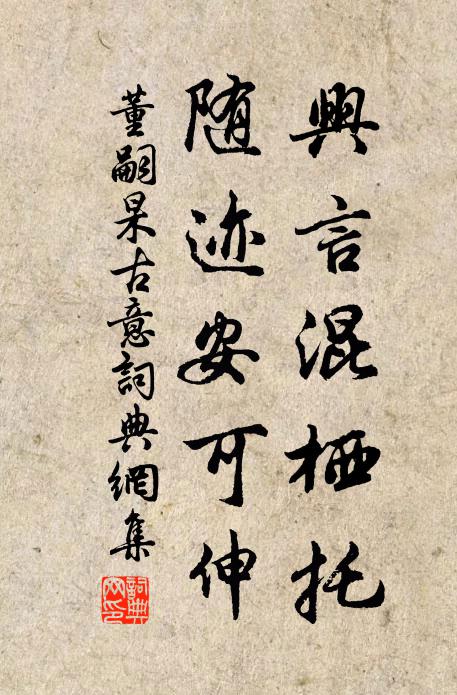 興言混栖托
随迹安可伸
董嗣杲古意詞典網集
詞典網印